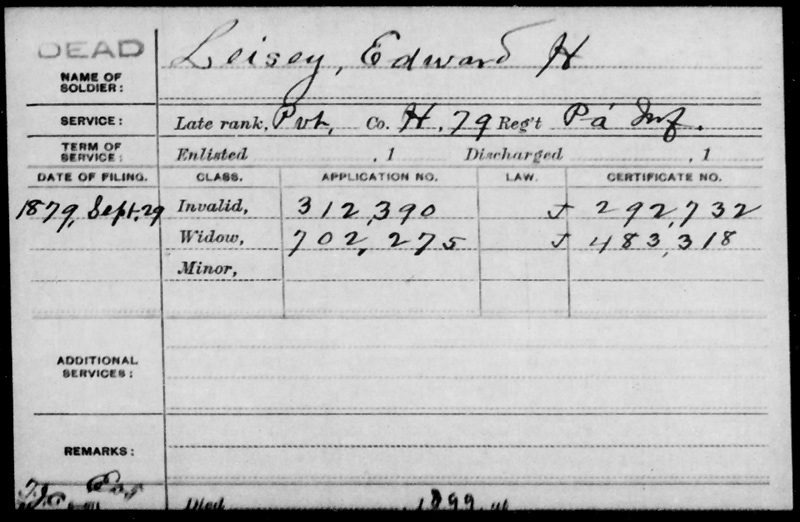 DEAD
Leisey, Edward H
NAME OF
SOLDIER:
SERVICE: Late rank, Pvt, Co. H, 79 Reg't Pa Inf.
TERM OF
SERVICE: Enlisted , 1 Discharged , 1
DATE OF FILING. CLASS. APPLICATION NO. LAW. CERTIFICATE NO.
1879, Sept, 29 Invalid, 312,390 J 292,732
Widow, 702,275 J 483,318
Minor,
ADDITIONAL
SERVICES:
REMARKS:
Died 1899, at